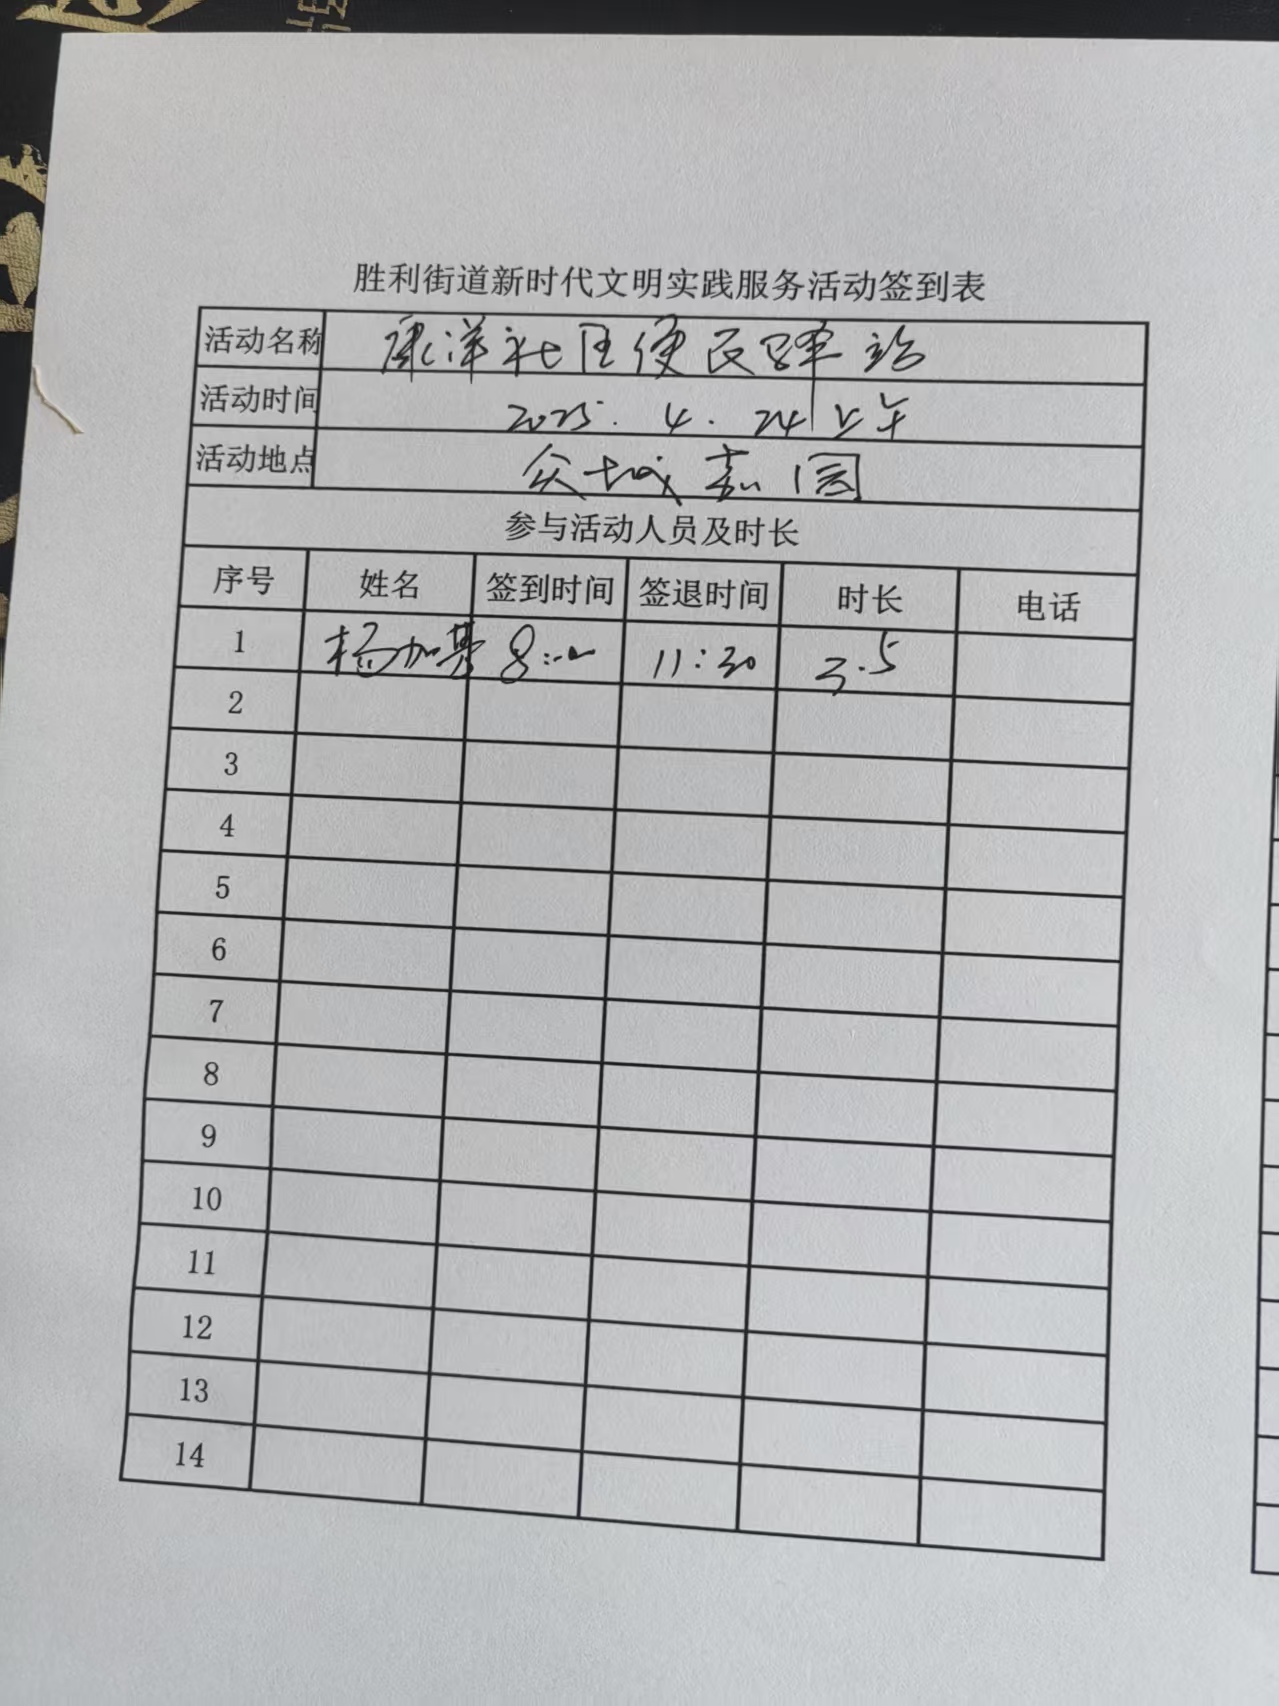 胜利街道新时代文明实践服务活动签到表
活动名称 康洋社区便民驿站
活动时间 2025.4.24上午
活动地点 众城嘉园
参与活动人员及时长
序号 姓名 签到时间 签退时间 时长 电话
1 杨加基 8:00 11:30 3.5
2
3
4
5
6
7
8
9
10
11
12
13
14